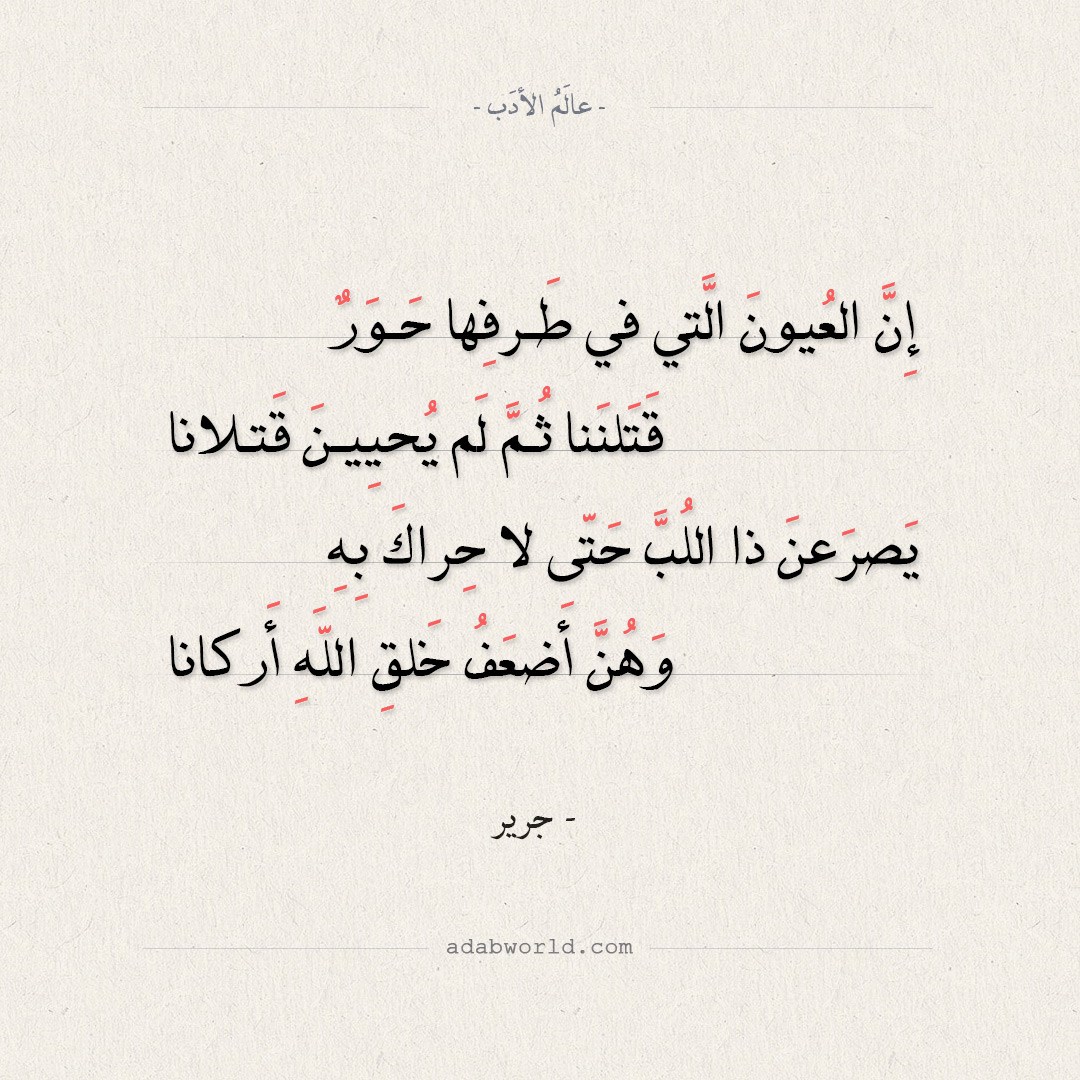 - عالَمُ الأدَب -
إِنَّ العُيونَ الَّتي في طَـرفِها حَـوَرٌ
قَتَلنَنا ثُـمَّ لَم يُحيِيـنَ قَتـلانا
يَصرَعنَ ذا اللُبَّ حَتّى لا حِراكَ بِهِ
وَهُنَّ أَضعَفُ خَلقِ اللَّهِ أَركانا
- جرير
adabworld.com